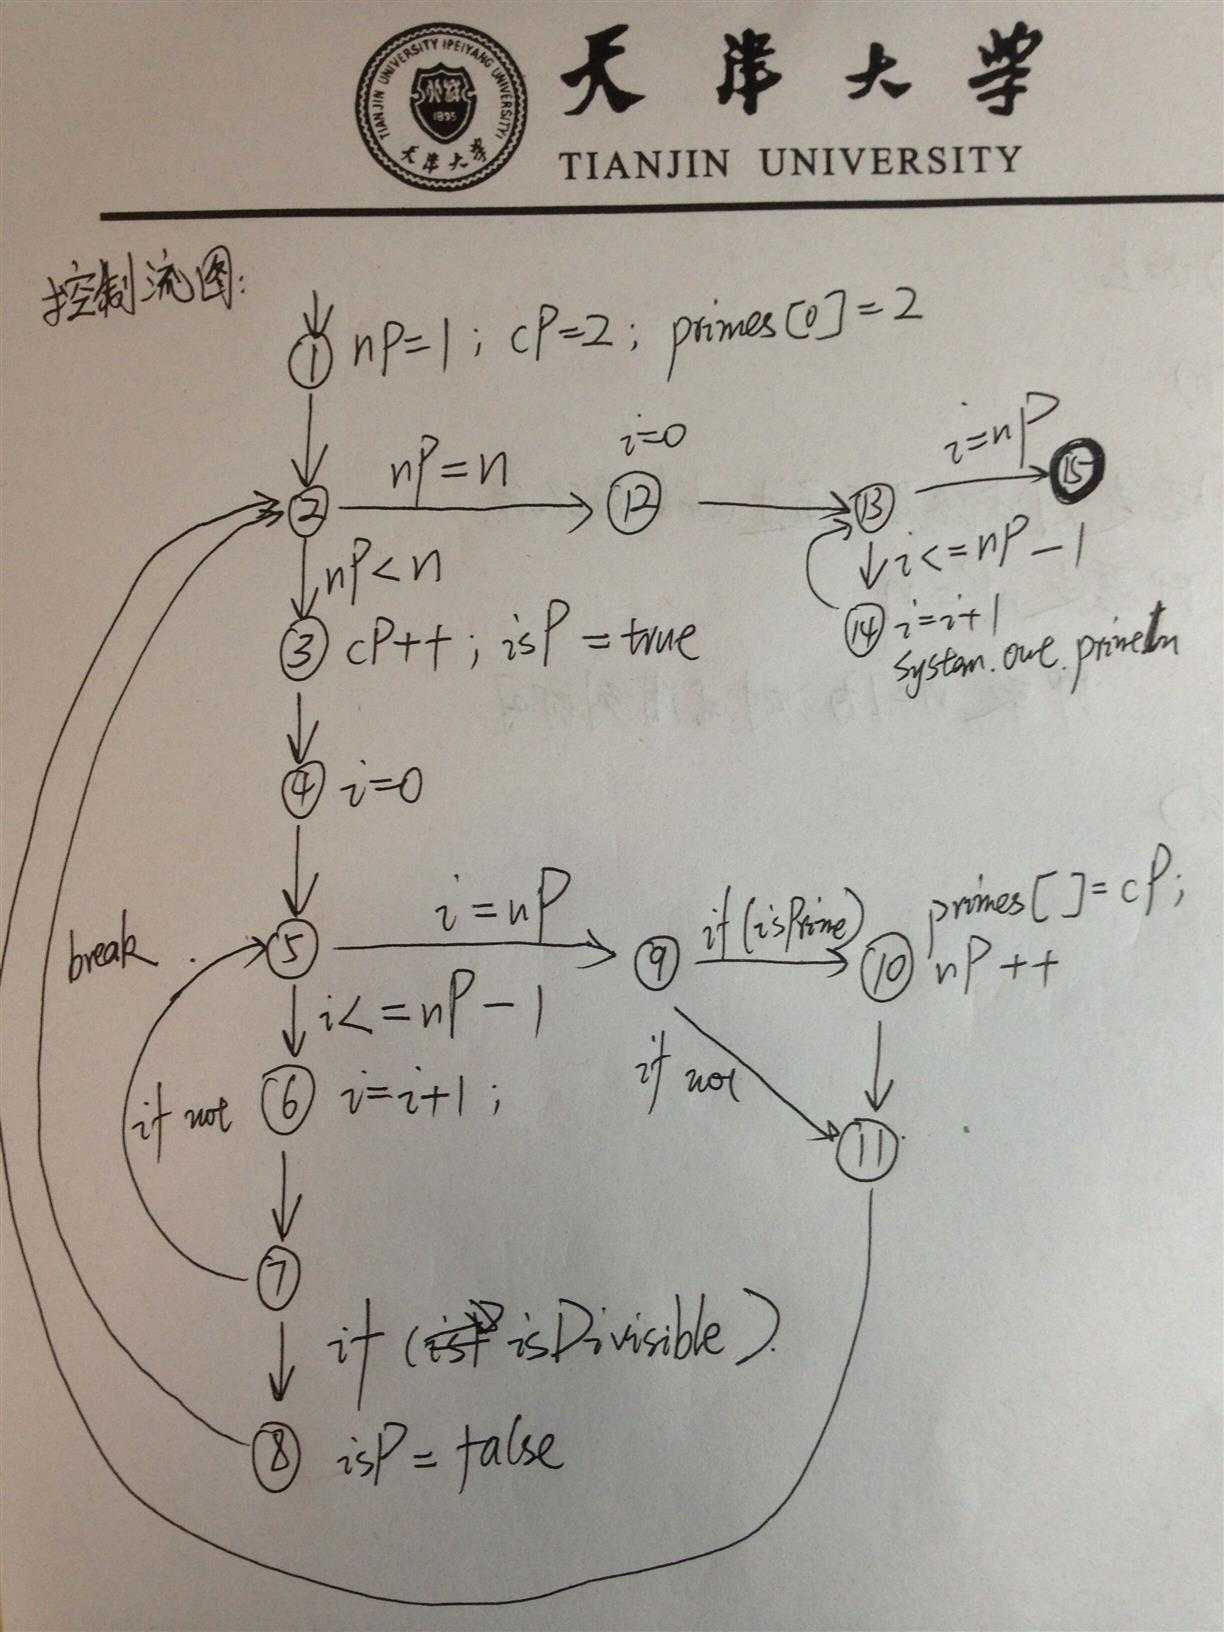 TIANJIN UNIVERSITY (PEIYANG UNIVERSITY)
北洋
1895
天津大学
天津大学
TIANJIN UNIVERSITY
控制流图:
1 nP=1; cP=2; primes[0]=2
i=0
i=nP
2 nP=n 12 13 15
nP<n
i<=nP-1
3 cP++; isP=true
14 i=i+1
System.out.println
4 i=0
break
5 i=nP 9 if(isPrime) 10 primes[ ]=cP;
nP++
i<=nP-1
if not
6 i=i+1;
if not
11
7
if (isDivisible)
8 isP=false